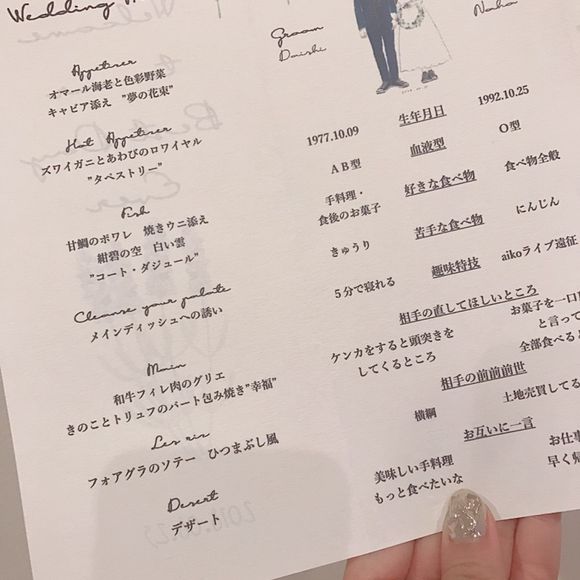 Wedding
Appetizer
オマール海老と色彩野菜
キャビア添え "夢の花束"
Hot Appetizer
ズワイガニとあわびのロワイヤル
"タペストリー"
Fish
甘鯛のポワレ 焼きウニ添え
紺碧の空 白い雲
"コート・ダジュール"
Cleanse your palate
メインディッシュへの誘い
Main
和牛フィレ肉のグリエ
きのことトリュフのパート包み焼き"幸福"
Les riz
フォアグラのソテー ひつまぶし風
Desert
デザート
Groom
Naho
1977.10.09 生年月日 1992.10.25
AB型 血液型 O型
手料理・
食後のお菓子 好きな食べ物 食べ物全般
きゅうり 苦手な食べ物 にんじん
5分で寝れる 趣味特技 aikoライブ遠征
相手の直してほしいところ
ケンカをすると頭突きを
してくるところ
お菓子を一口
と言って
全部食べると
相手の前前前世
横綱 土地売買してる
お互いに一言
美味しい手料理
もっと食べたいな
お仕事
早く帰